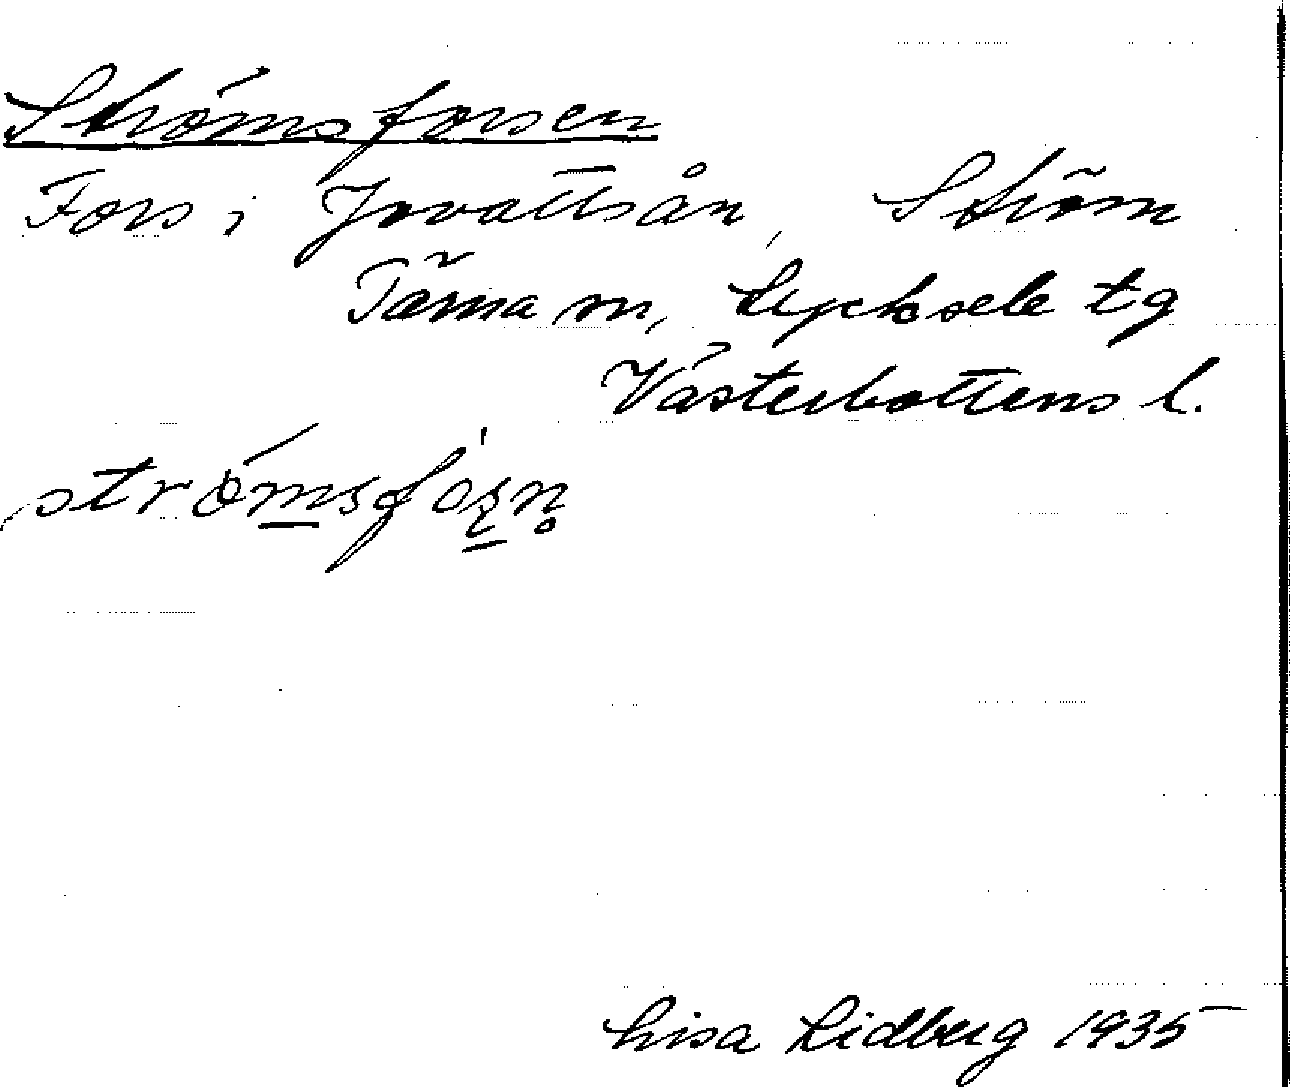 Strömsforsen
Fors i Jovattsån, Ström
Tärna sn, Lycksele tg
Västerbottens l.
strömsfos̱n̥
Lisa Lidberg 1935